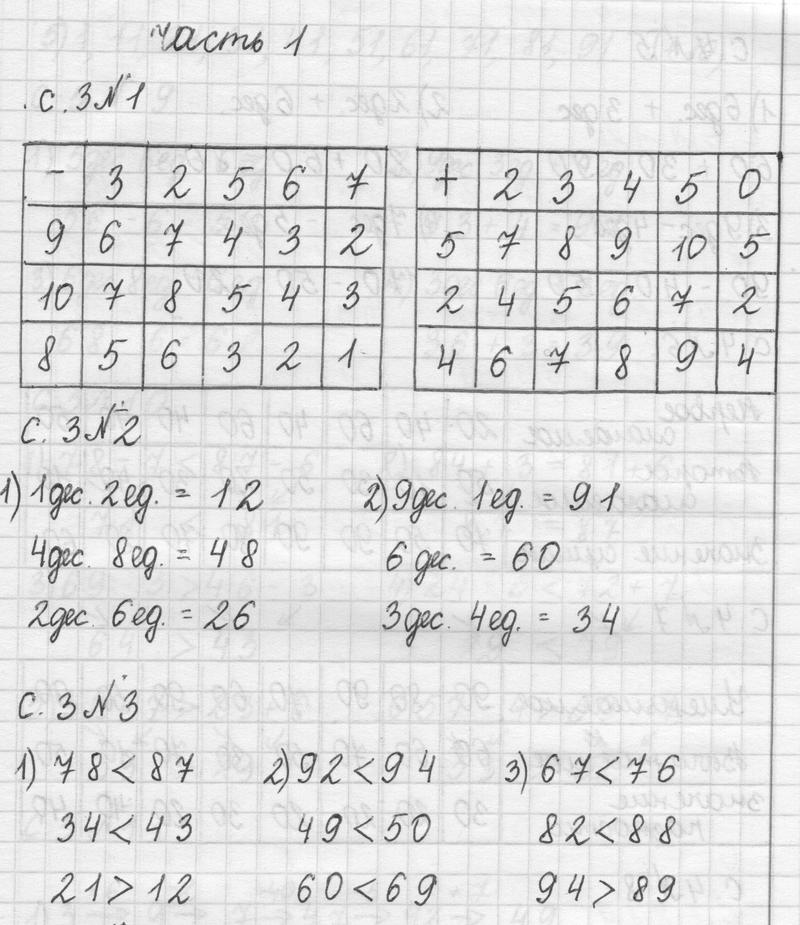 Часть 1
с. 3 №1
- 3 2 5 6 7 + 2 3 4 5 0
9 6 7 4 3 2 5 7 8 9 10 5
10 7 8 5 4 3 2 4 5 6 7 2
8 5 6 3 2 1 4 6 7 8 9 4
с. 3 №2
1) 1дес. 2ед. = 12 2) 9дес. 1ед. = 91
4дес. 8ед. = 48 6 дес. = 60
2дес. 6ед. = 26 3дес. 4ед. = 34
с. 3 №3
1) 78 < 87 2) 92 < 94 3) 67 < 76
34 < 43 49 < 50 82 < 88
21 > 12 60 < 69 94 > 89